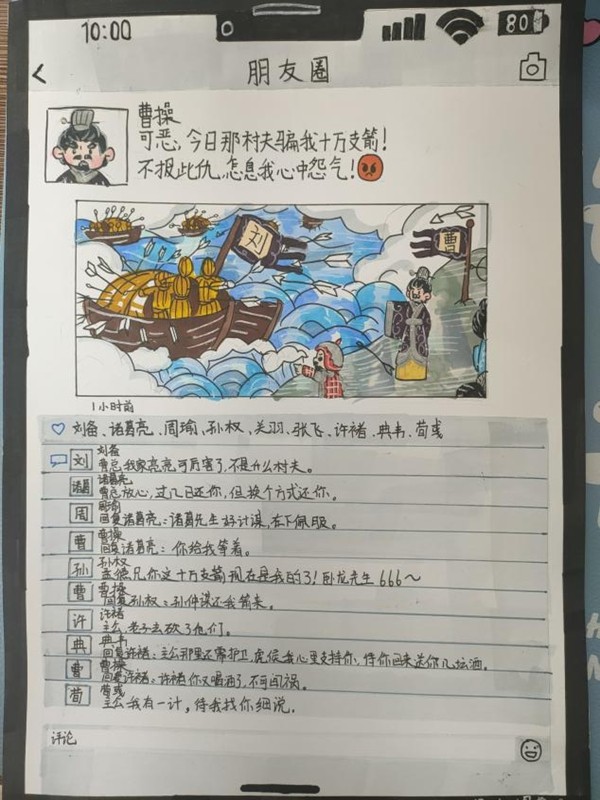 10:00
80
朋友圈
曹操
可恶,今日那村夫骗我十万支箭!
不报此仇,怎息我心中怨气!
刘
曹
1小时前
刘备、诸葛亮、周瑜、孙权、关羽、张飞、许褚、典韦、荀彧
刘备
刘
曹总我家亮亮可厉害了,不是什么村夫。
诸葛亮
诸葛
曹总放心,过几日还你,但换个方式还你。
周瑜
周
回复诸葛亮:诸葛先生好计谋,在下佩服。
曹操
曹
回复诸葛亮:你给我等着。
孙权
孙
孟德兄你这十万支箭现在是我的了!卧龙先生666~
曹操
曹
回复孙权:孙仲谋还我箭来。
许褚
许
主公,老子去砍了他们。
典韦
典
回复许褚:主公那里还需护卫,虎侯我心里支持你,待你回来送你几坛酒。
曹操
曹
回复许褚:许褚你又喝酒了,不可闯祸。
荀彧
荀
主公我有一计,待我找你细说.
评论